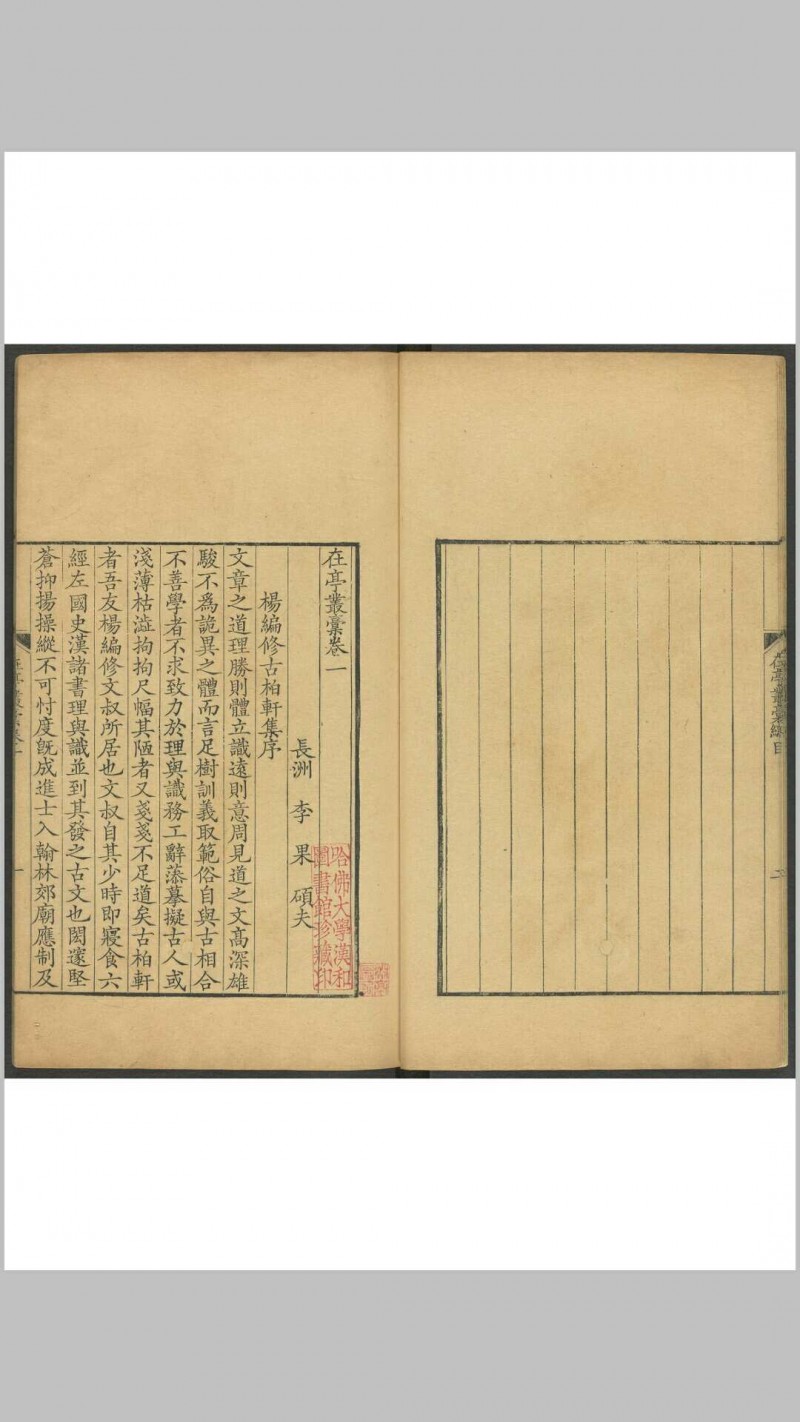 在亭叢槀總目
二
在亭叢槀卷一
長洲 李 果 碩夫
楊編修古柏軒集序
文章之道理勝則體立識遠則意周見道之文高深雄
駿不爲詭異之體而言足樹訓義取範俗自與古相合
不善學者不求致力於理與識務工辭藻摹擬古人或
淺薄枯澁拘拘尺幅其陋者又戔戔不足道矣古柏軒
者吾友楊編修文叔所居也文叔自其少時即寢食六
經左國史漢諸書理與識並到其發之古文也閎邃堅
蒼抑揚操縱不可忖度旣成進士入翰林郊廟應制及
一
哈佛大學漢和
圖書館珍藏印